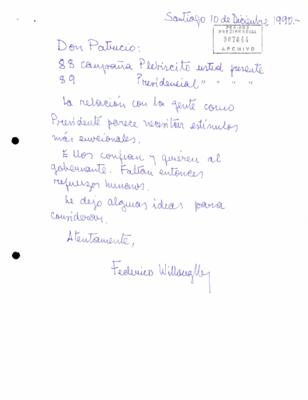 Santiago 10 de Diciembre 1990.-
PERIODO
PRESIDENCIAL
007644
ARCHIVO
Don Patricio:
88 campaña Plebiscito usted presente
89 Presidencial " " "
La relación con la gente como
Presidente parece necesitar estímulos
más emocionales.
Ellos confían y quieren al
gobernante. Faltan entonces
refuerzos humanos.
Le dejo algunas ideas para
considerar.
Atentamente,
Federico Willoughby